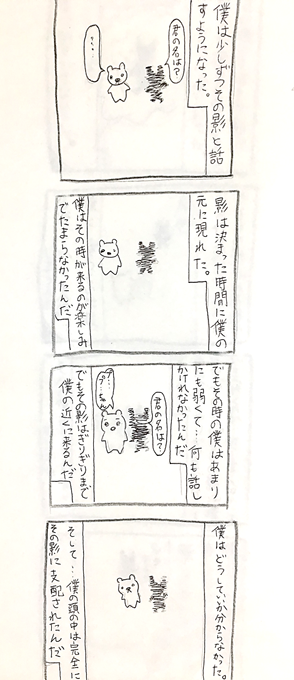 僕は少しずつその影と話
すようになった。
君の名は?
・・・。
影は決まった時間に僕の
元に現れた。
僕はその時が来るのが楽しみ
でたまらなかったんだ
でもその時の僕はあまり
にも弱くて…何も話し
かけれなかったんだ
君の名は?
でもその影はぎりぎりまで
僕の近くに来るんだ
僕はどうしていいか分からなかった。
そして…僕の頭の中は完全に
その影に支配されたんだ